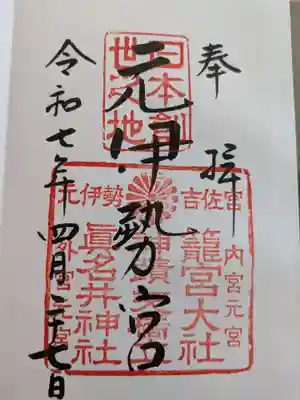 奉拝
日本創世之地
元伊勢宮
吉佐宮
元伊勢
内宮元宮
籠宮大社
眞名井神社
外宮元宮
令和七年四月二十七日